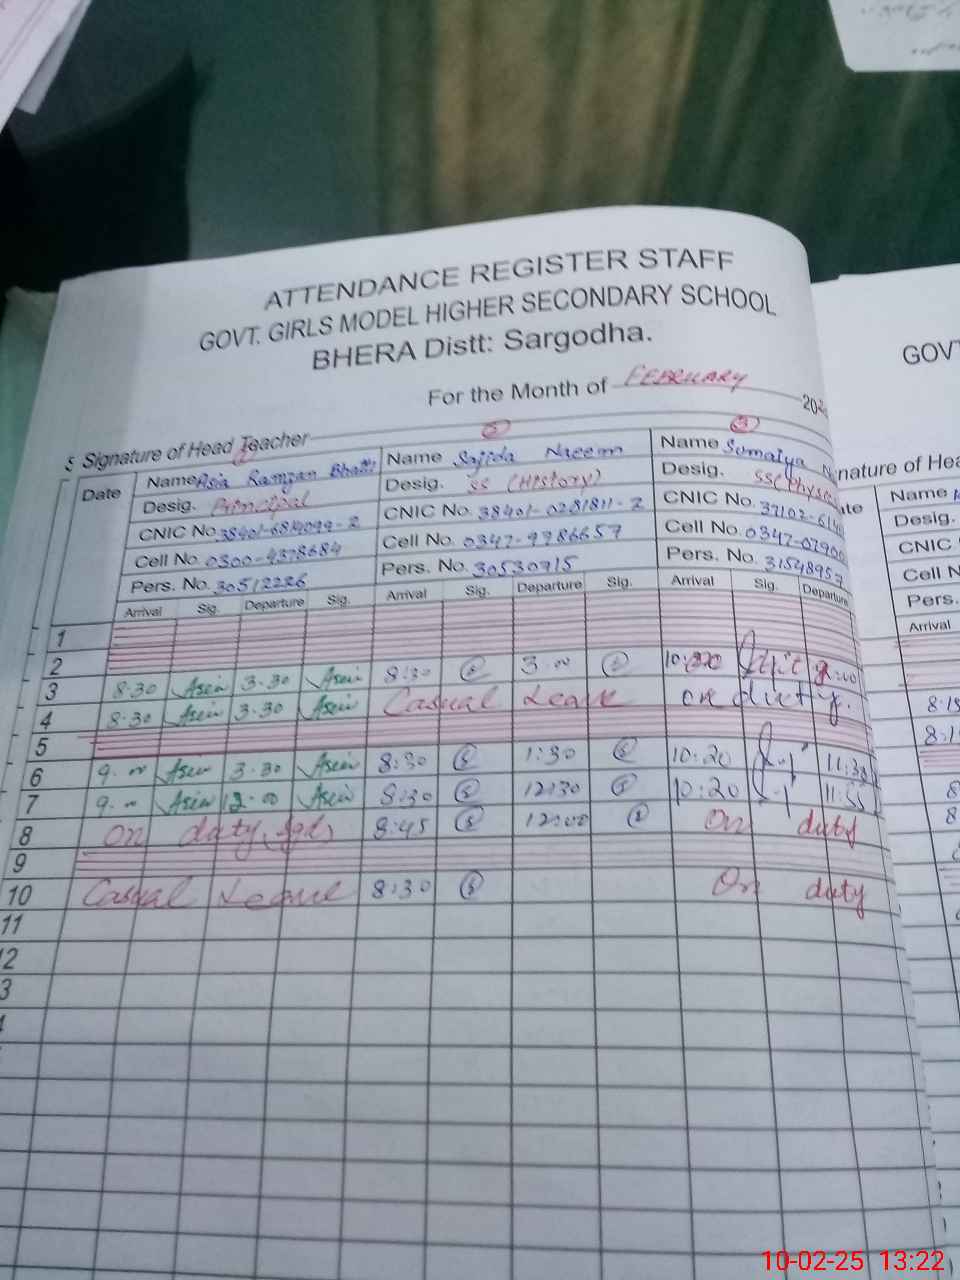 ATTENDANCE REGISTER STAFF
GOVT. GIRLS MODEL HIGHER SECONDARY SCHOOL
BHERA Distt: Sargodha.
For the Month of FEBRUARY 202
GOVT
Signature of Head Teacher
Date
Name Asia Ramzan Bhatti
Desig. Principal
CNIC No. 38401-6814099-2
Cell No. 0300-4378684
Pers. No. 30512226
Arrival Sig. Departure Sig.
Name Sajida Naeem
Desig. SS (History)
CNIC No. 38401-0281811-2
Cell No. 0347-9786657
Pers. No. 30530715
Arrival Sig. Departure Sig.
Name Sumaiya N
Desig. SS(Physics
CNIC No. 37102-614
Cell No. 0347-07900
Pers. No. 31548957
Arrival Sig. Departure
nature of Hea
ate
Name
Desig.
CNIC
Cell N
Pers.
Arrival
1
2
3 8:30 Asia 3.30 Asia 8:30 3.00 10:20
4 8:30 Asia 3.30 Asia Casual Leave on duty. 8:15
5
6 9.00 Asia 3.30 Asia 8:30 1:30 10:20 11:30
7 9.00 Asia 12.00 Asia 8:30 12:30 10:20 11:55
8 On duty 8:45 12:00 On duty
9
10 Casual Leave 8:30 On duty
11
2
3
10-02-25 13:22